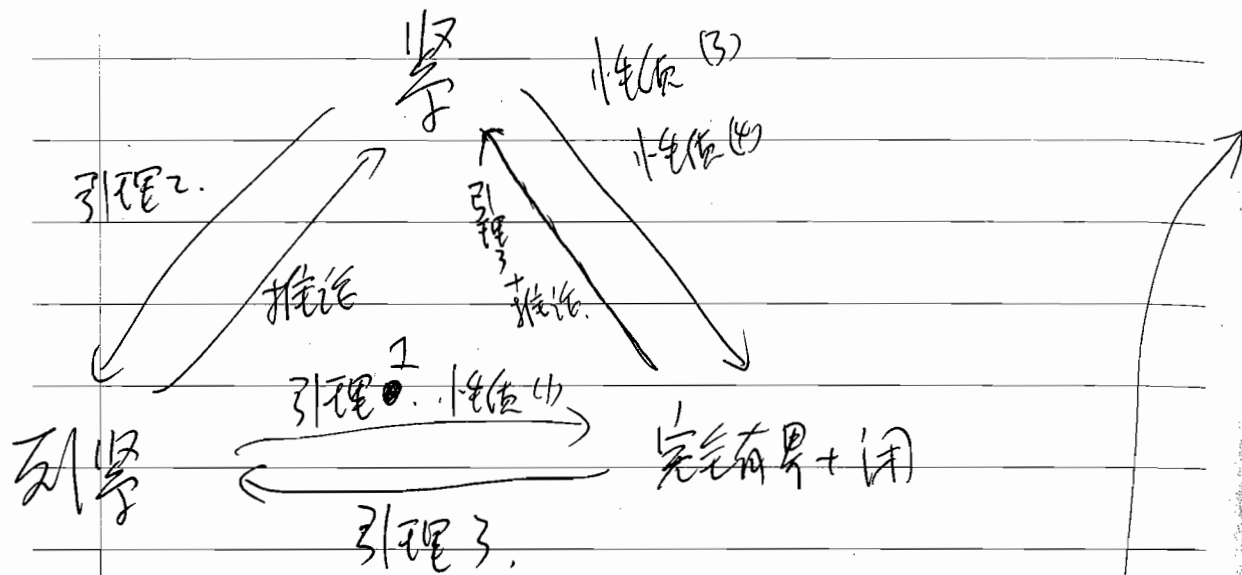 紧
性质(3)
性质(4)
引理2.
推论
引理3
+
推论.
引理1.性质(1)
列紧
完全有界+闭
引理3.